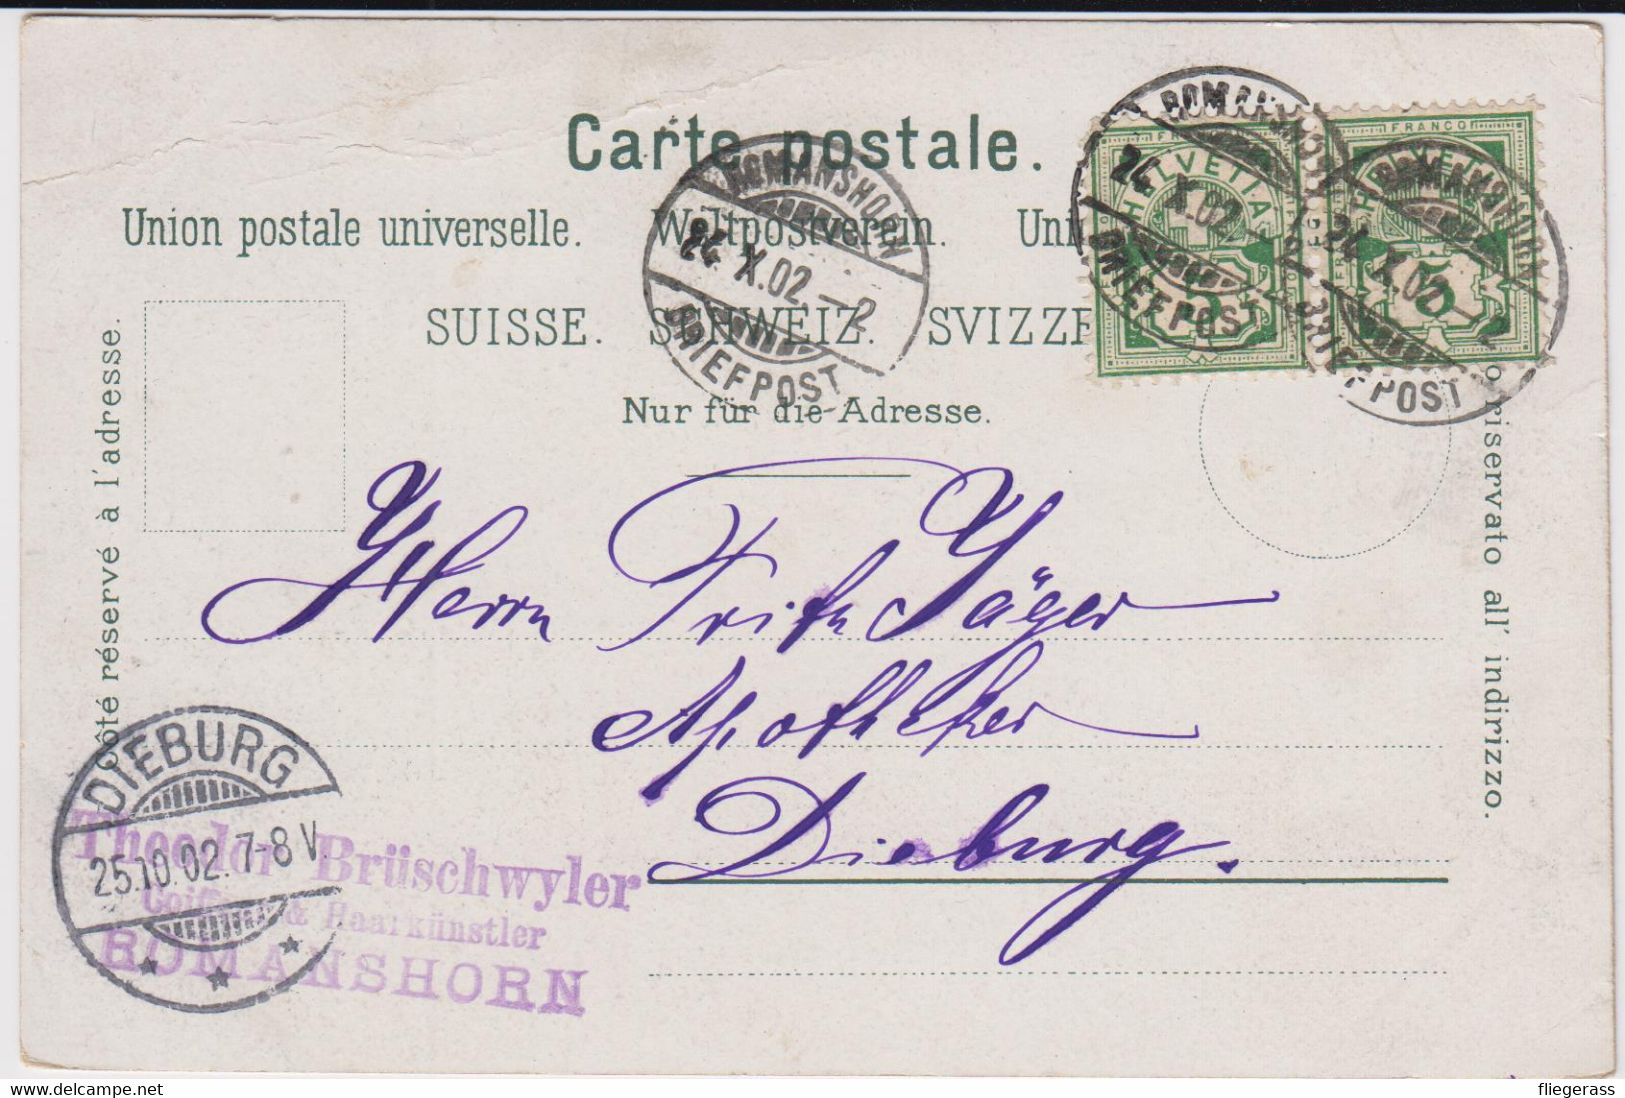 Carte postale.
Union postale universelle. Weltpostverein. Uni
SUISSE. SCHWEIZ. SVIZZE
Nur für die Adresse.
Côté réservé à l'adresse.
o riservato all' indirizzo.
ROMANSHORN
24 X.02 – 2
BRIEFPOST
ROMANSHORN
24 X.02 – 2
BRIEFPOST
ROMANSHORN
24 X.02 – 2
BRIEFPOST
FRANCO
HELVETIA
5
FRANCO
HELVETIA
5
Herrn Fritz Jäger
Apotheker
Dieburg.
DIEBURG
25.10.02. 7-8 V.
Theodor Brüschwyler
Coiffeur & Haarkünstler
ROMANSHORN
www.delcampe.net
fliegerass